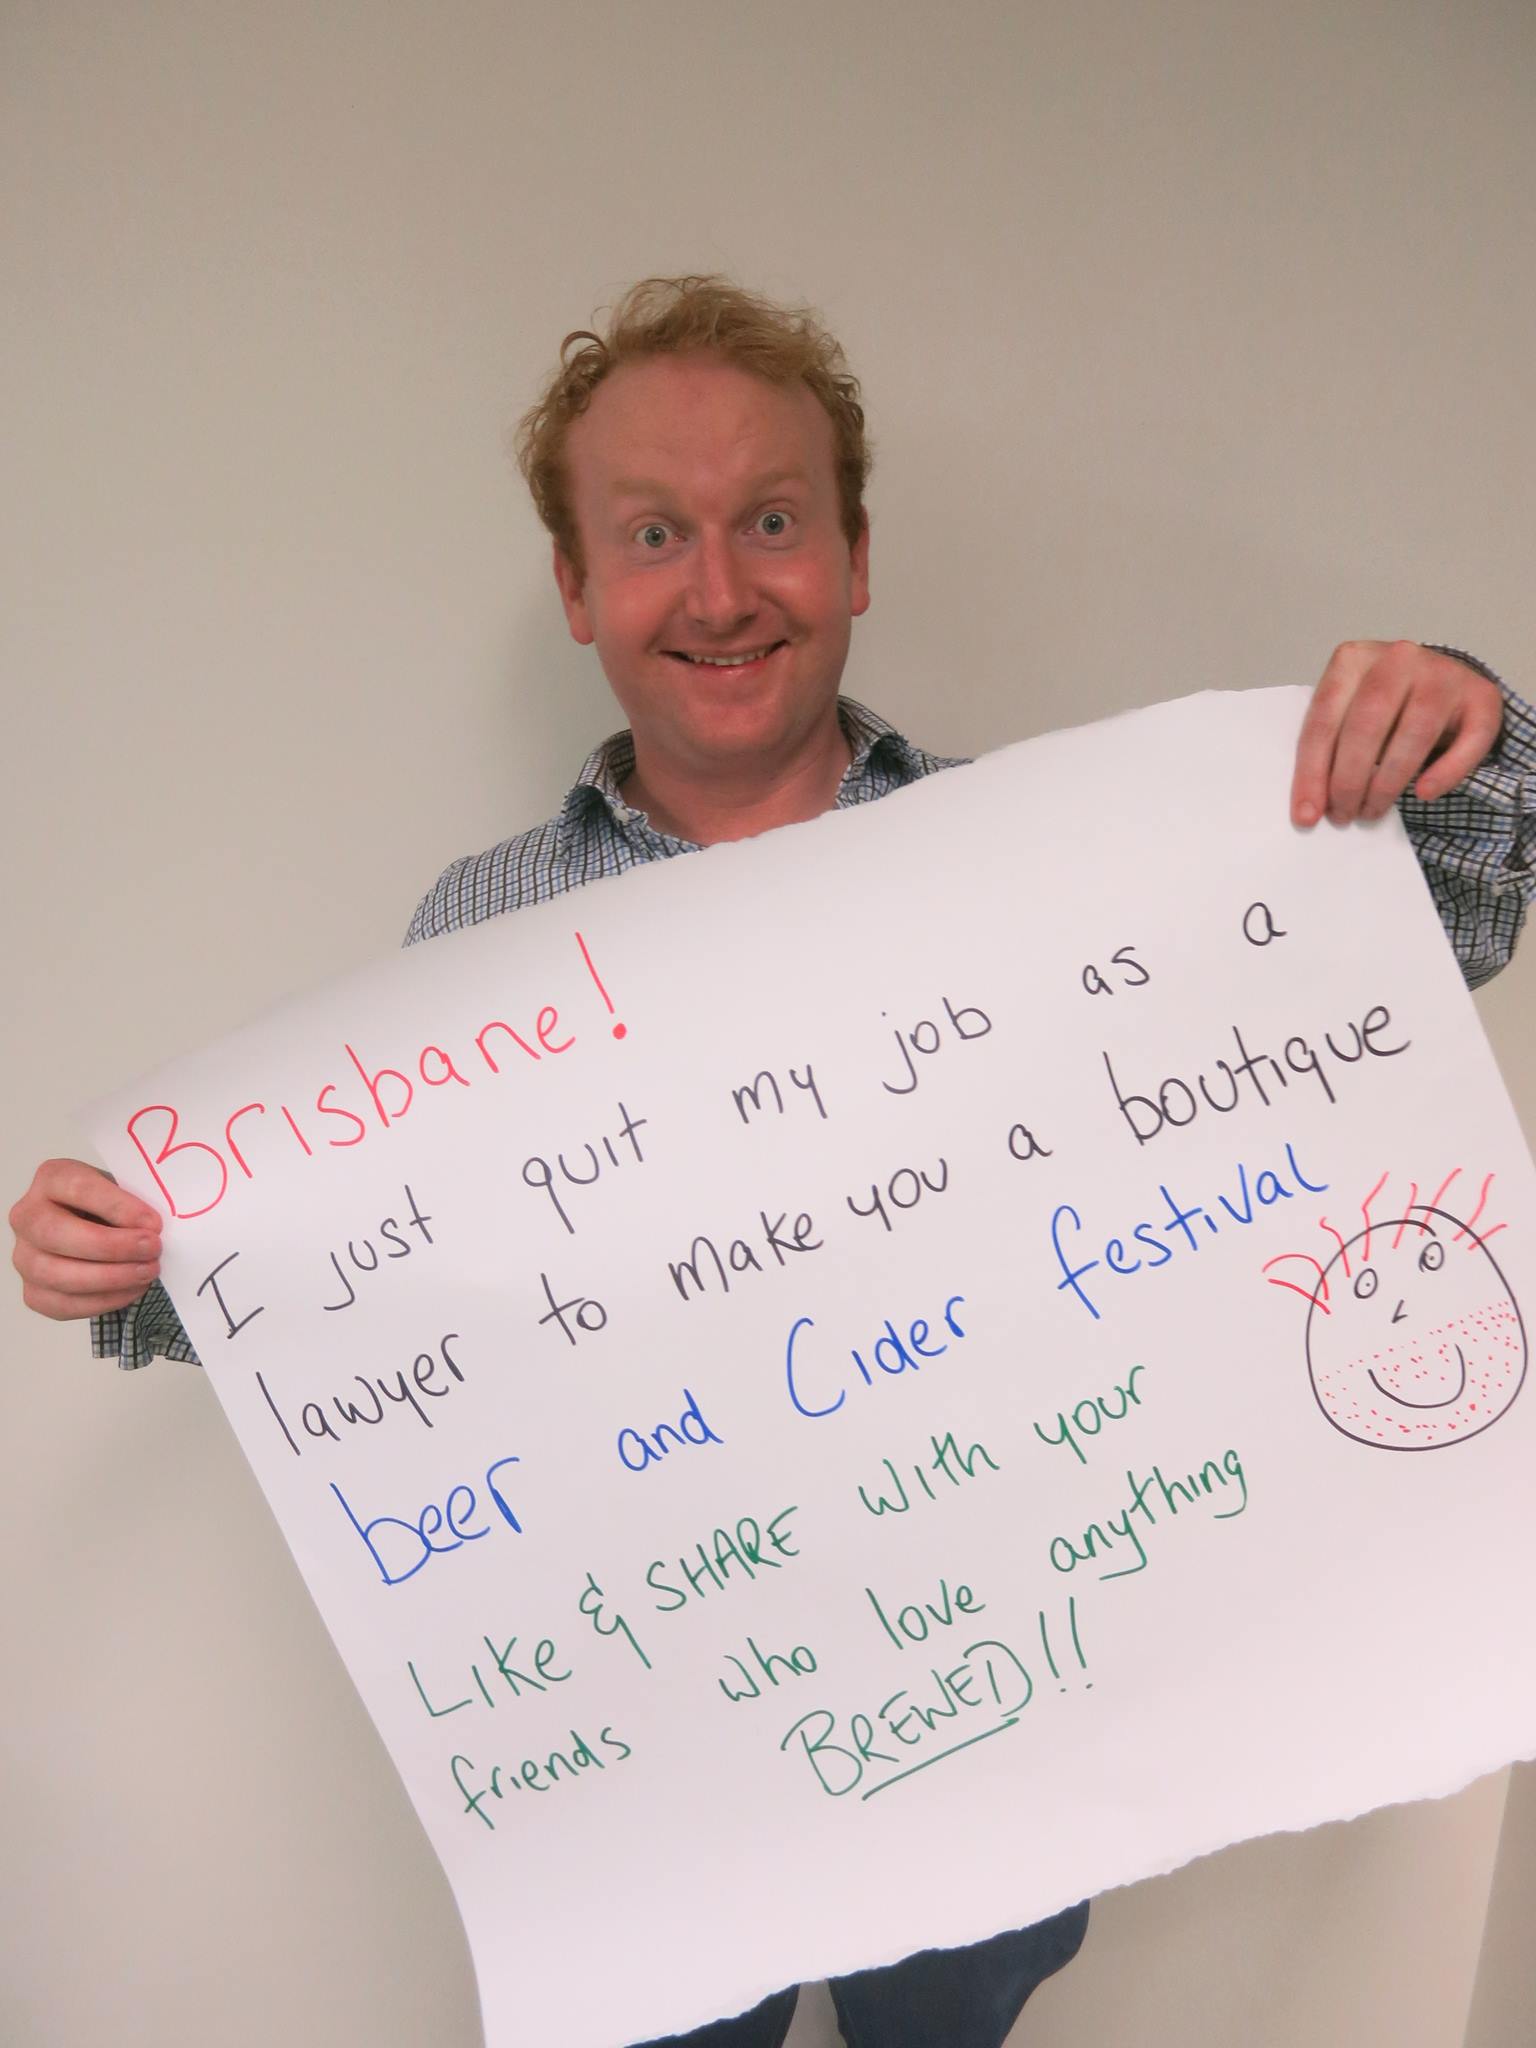 Brisbane!
I just quit my job as a
lawyer to make you a boutique
beer and Cider festival
Like & SHARE with your
friends who love anything
BREWED!!